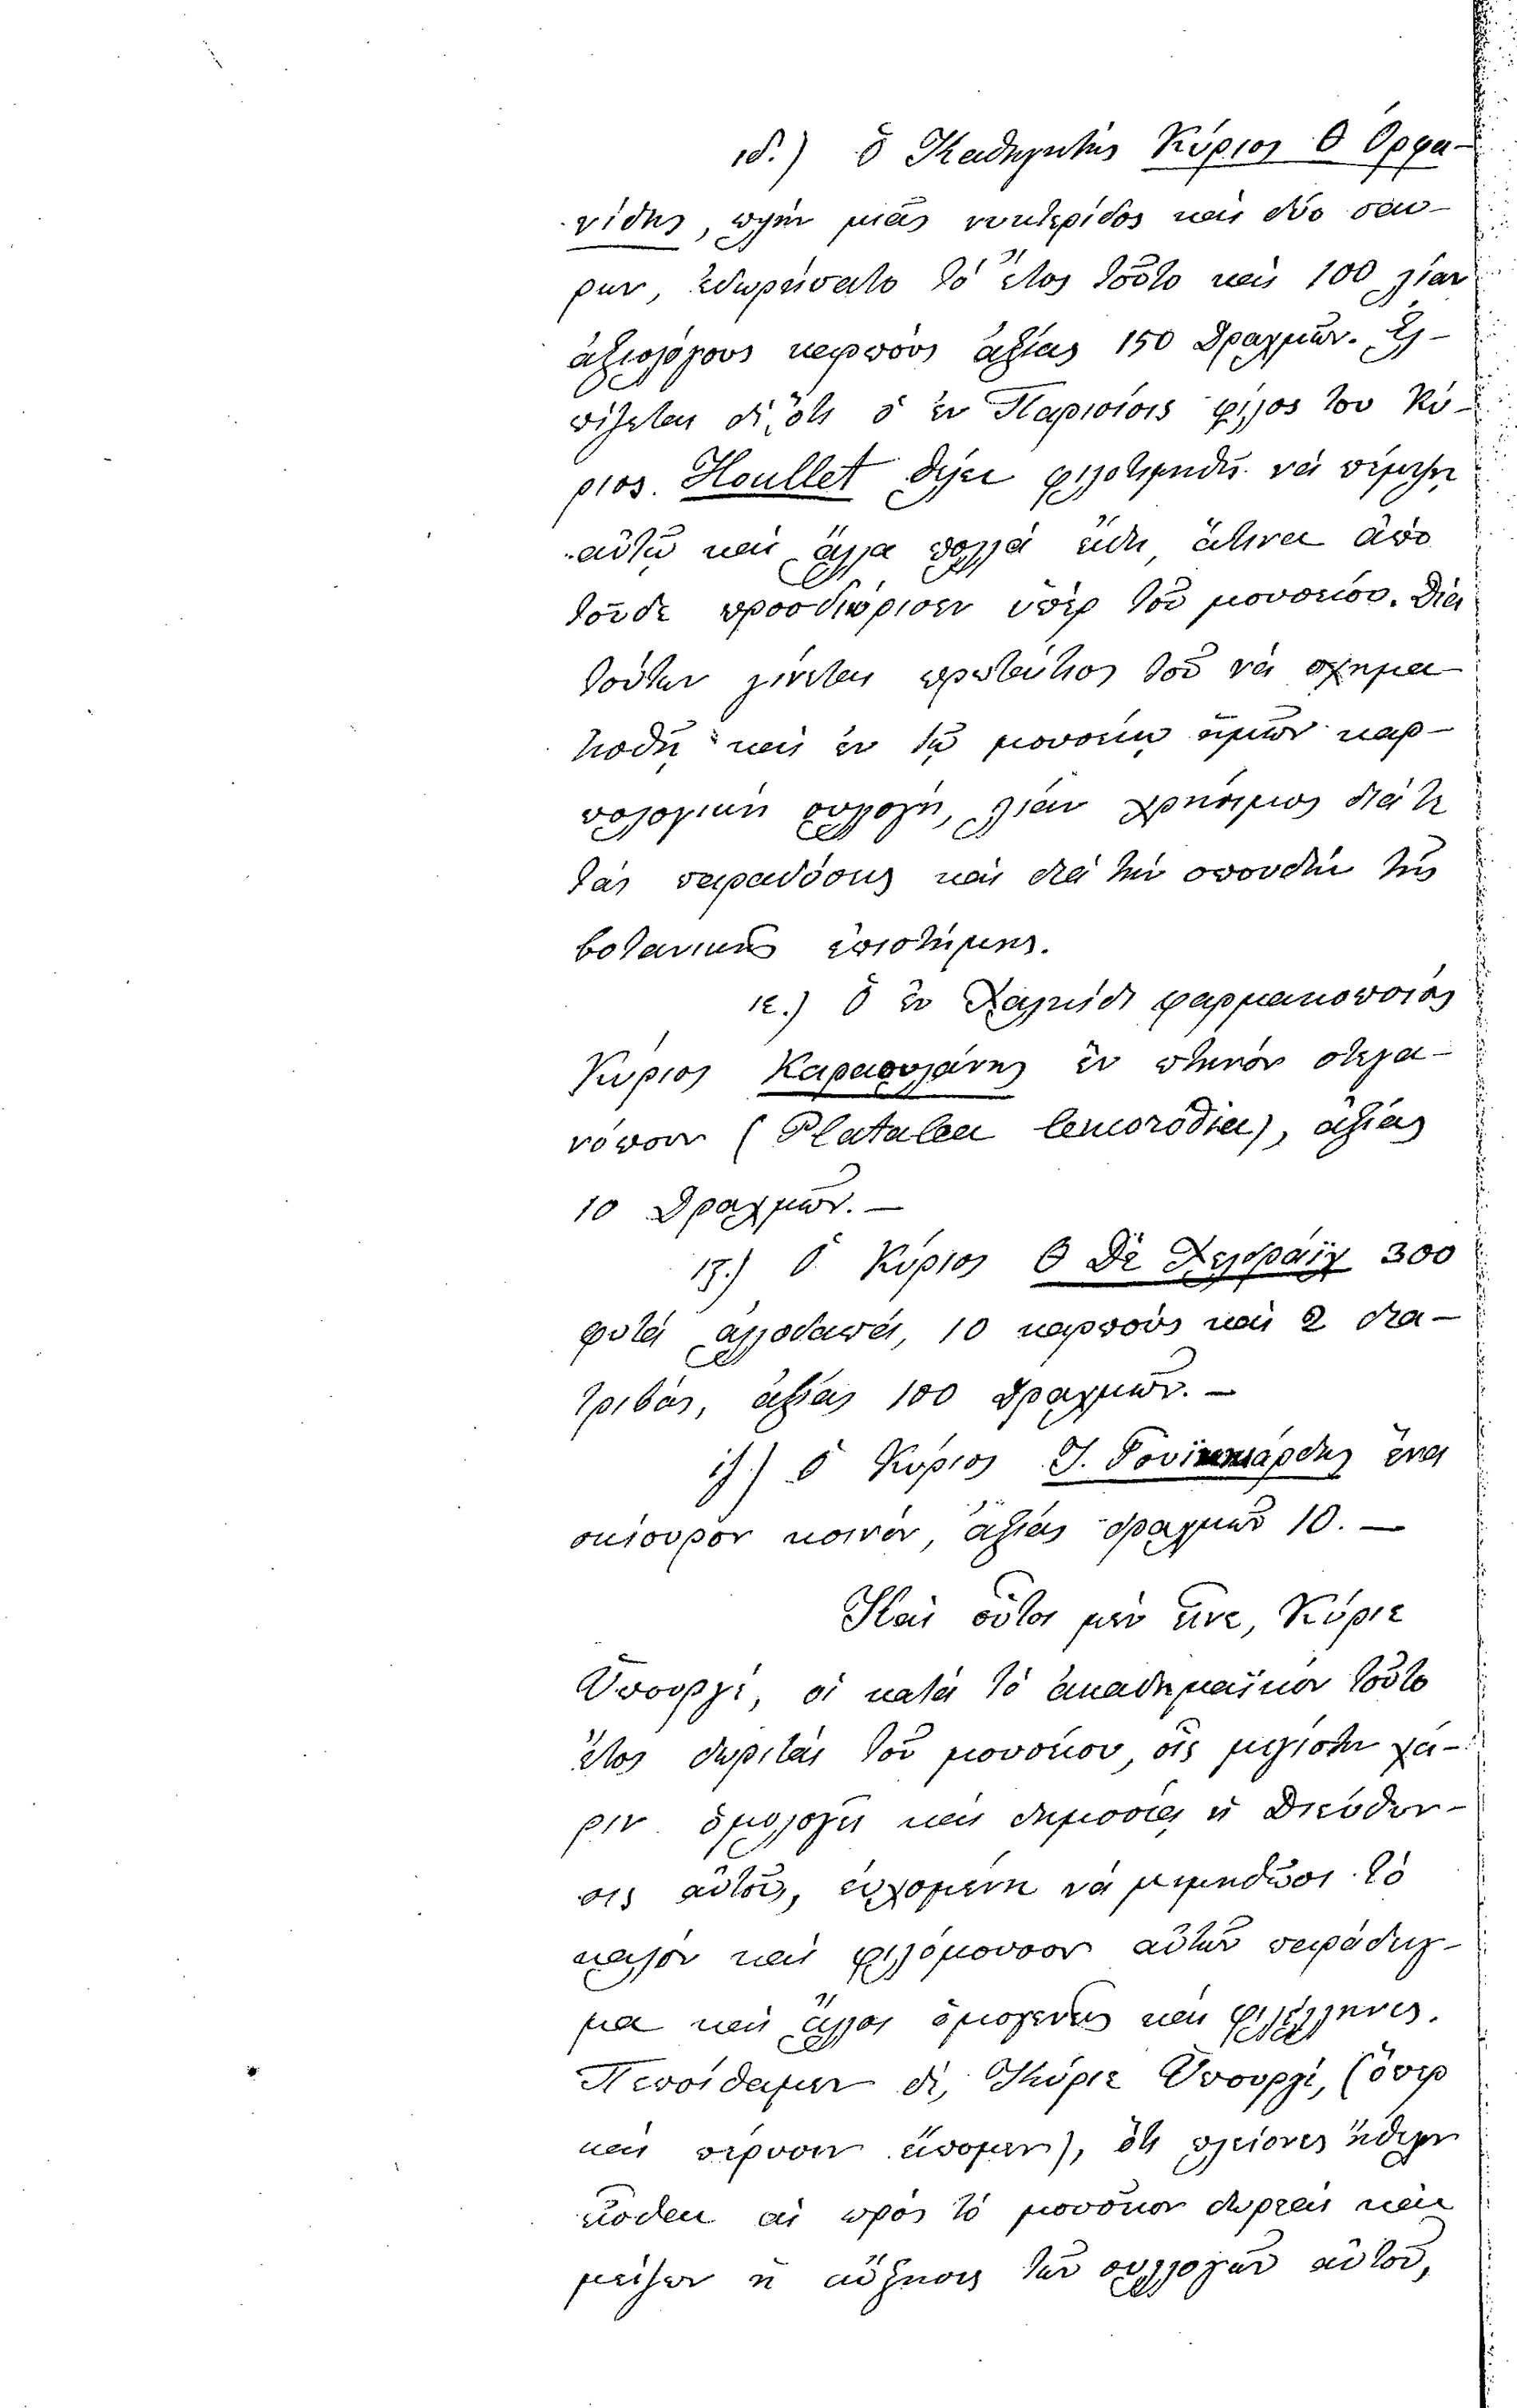 ιδ.) ὁ Καθηγητὴς Κύριος Θ Ὀρφα-
νίδης, πλὴν μιᾶς νυκτερίδος καὶ δύο σαυ-
ρων, ἐδωρήσατο τὸ ἔτος τοῦτο καὶ 100 λίαν
ἀξιολόγους καρποὺς ἀξίας 150 Δραχμῶν. Ἐλ-
πίζεται δὲ, ὅτι ὁ ἐν Παρισίοις φίλος του Κύ-
ριος Houllet θέλει φιλοτιμηθῆ νὰ πέμψῃ
αὐτῷ καὶ ἄλλα πολλὰ εἴδη, ἅτινα ἀπὸ
τοῦδε προσδιώρισεν ὑπὲρ τοῦ μουσείου. Διὰ
τούτων γίνεται πρωταίτιος τοῦ νὰ σχημα-
τισθῇ καὶ ἐν τῷ μουσείῳ ἡμῶν καρ-
πολογικὴ συλλογὴ, λίαν χρήσιμος διά τε
τὰς παραδόσεις καὶ διὰ τὴν σπουδὴν τῆς
βοτανικῆς ἐπιστήμης.
ιε.) Ὁ ἐν Χαλκίδι φαρμακοποιὸς
Κύριος Καραουλάνης ἓν πτηνὸν στεγα-
νόπουν (Platalea leucorodia), ἀξίας
10 Δραχμῶν. —
ιϛ.) Ὁ Κύριος Θ Δὲ Χελδράϊχ 300
φυτὰ ἀλλοδαπὰ, 10 καρποὺς καὶ 2 δια-
τριβὰς, ἀξίας 100 Δραχμῶν. —
ιζ.) ὁ Κύριος Ι. ἕνα
σκίουρον κοινὸν, ἀξίας δραχμῶν 10. —
Καὶ οὗτοι μὲν εἶνε, Κύριε
Ὑπουργὲ, οἱ κατὰ τὸ ἀκαδημαϊκὸν τοῦτο
ἔτος δωρηταὶ τοῦ μουσείου, οἷς μεγίστην χά-
ριν ὁμολογεῖ καὶ δημοσίᾳ ἡ Διεύθυν-
σις αὐτοῦ, εὐχομένη νὰ μιμηθῶσι τὸ
καλὸν καὶ φιλόμουσον αὐτῶν παράδειγ-
μα καὶ ἄλλοι ὁμογενεῖς καὶ φιλέλληνες.
Πεποίθαμεν δὲ, Κύριε Ὑπουργὲ, (ὅπερ
καὶ πέρυσιν εἴπομεν), ὅτι πλείονες ἤθελον
εἶσθαι αἱ πρὸς τὸ μουσεῖον δωρεαὶ καὶ
μείζων ἡ αὔξησις τῶν συλλογῶν αὐτοῦ,